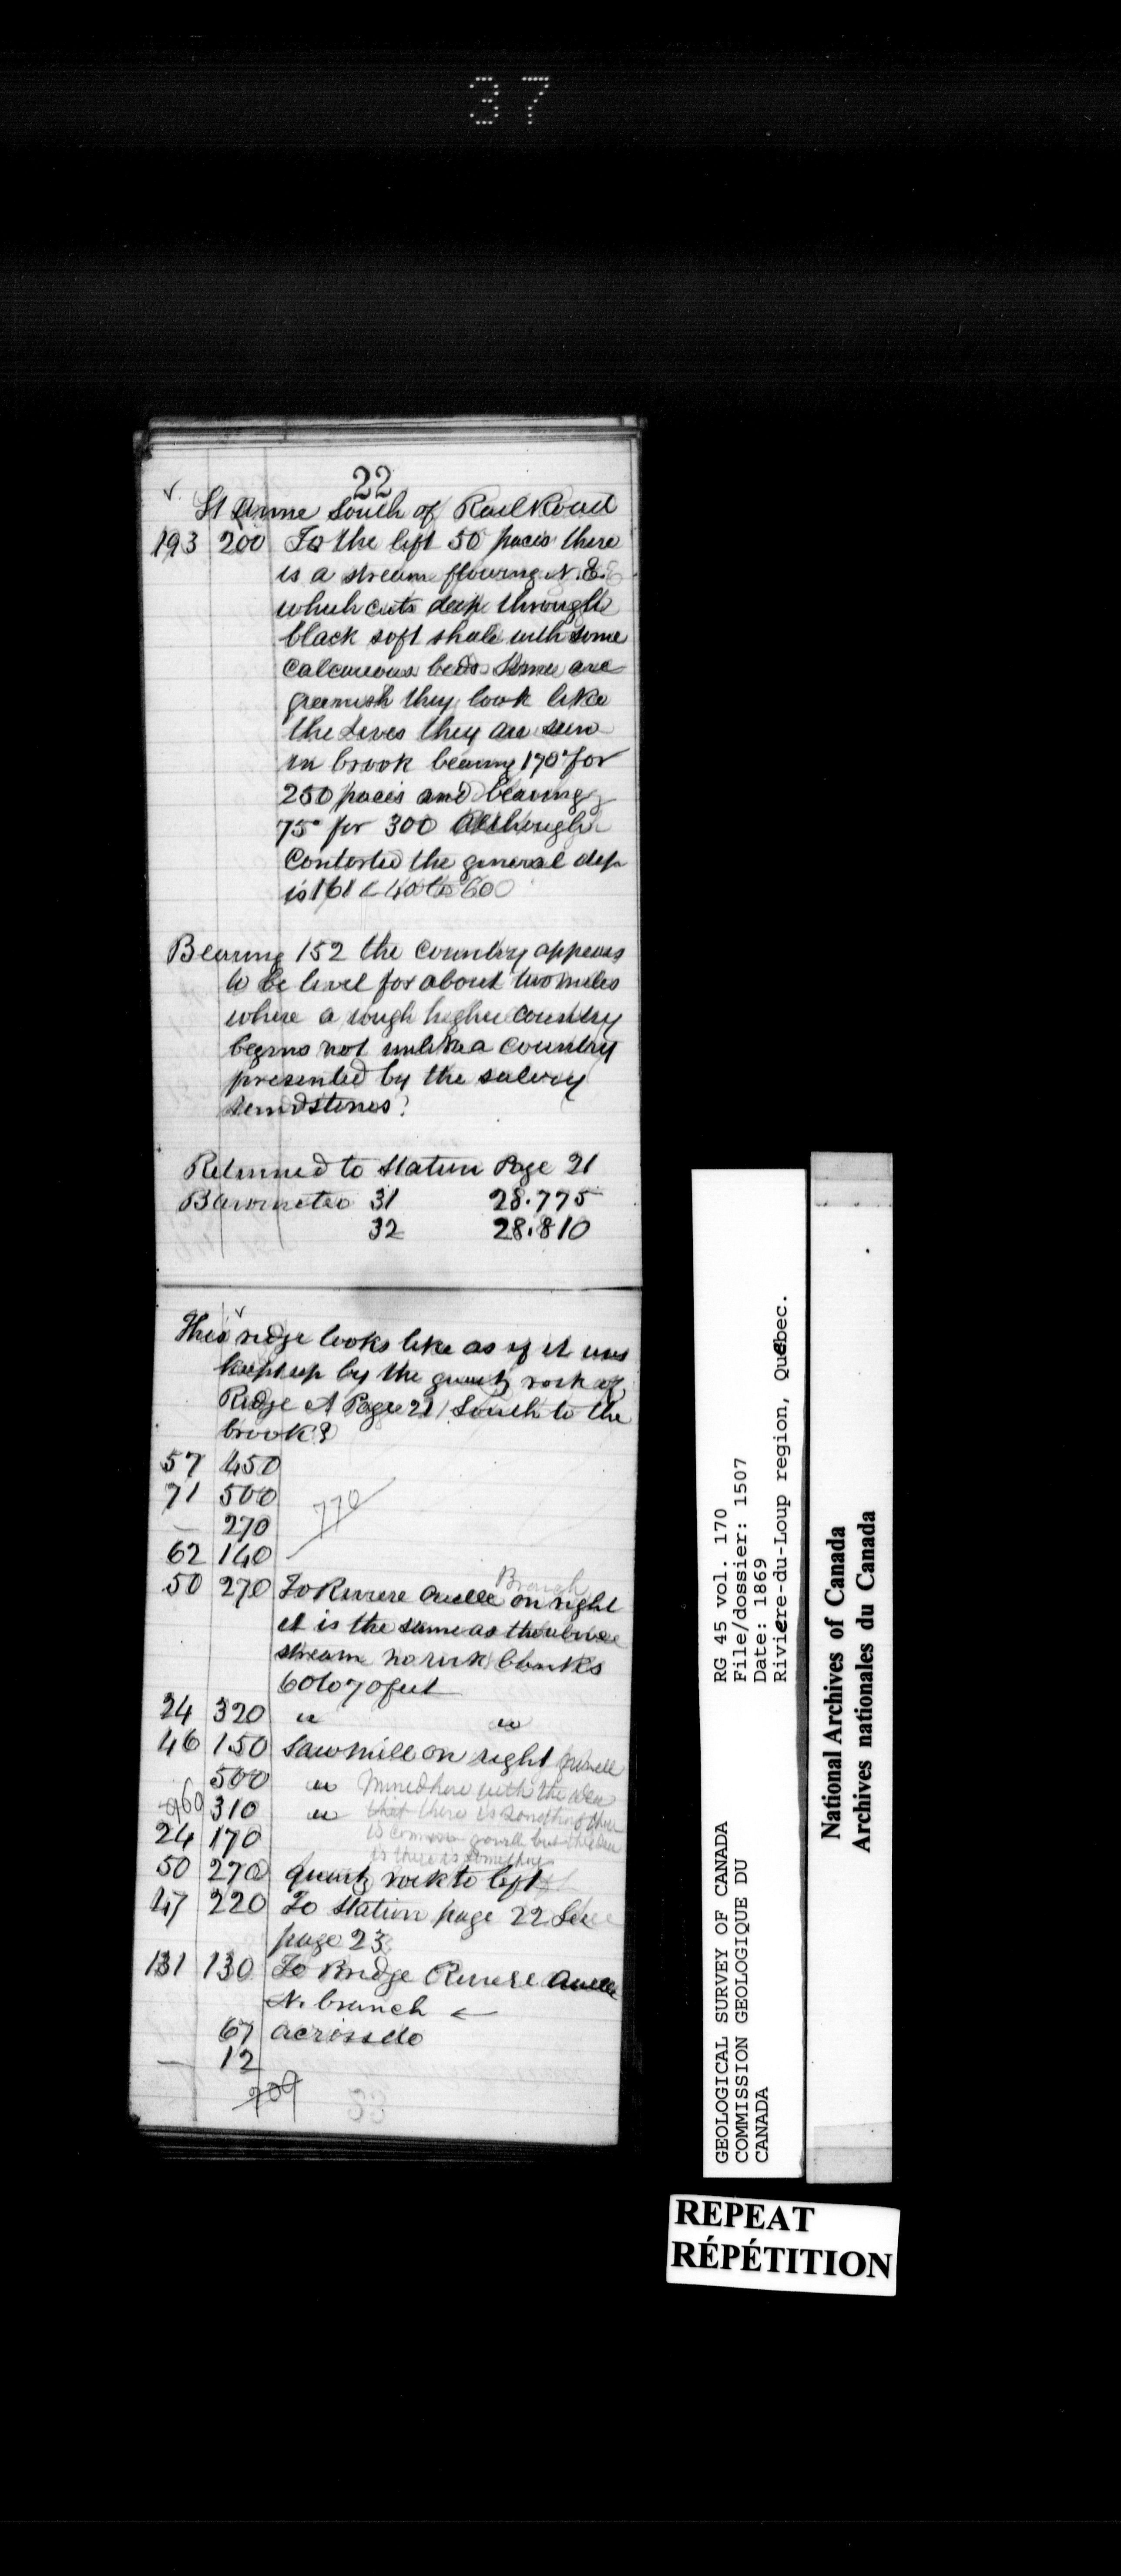 37
22
St Anne South of Rail Road
193 200 To the left 50 paces there
is a stream flowing N.E.
which cuts deep through
black soft shale with some
calcareous beds some are
greenish they look like
the Levis they are seen
in brook bearing 170° for
250 paces and bearing
75° for 300 Although
Contorted the general dip
is 161 < 40 to 60
Bearing 152 the country appears
to be level for about two miles
where a rough higher country
begins not unlike a country
presented by the
sandstones?
Returned to Station Page 21
Barometer 31 28.775
32 28.810
This ridge looks like as if it was
kept up by the quartz rock of
Ridge A Page 21 South to the
brook?
57 450
71 500
— 270 770
62 140
50 270 To Rivere Ouelle Branch on right
it is the same as the above
stream no rock banks
60 to 70 feet
24 320 " "
46 150 Sawmill on right
500 "
960 310 " that there is
24 170
is there is something
50 270 quartz rock to left
47 220 To Station page 22 See
page 23
131 130 To Bridge Rivere Ouelle
N. branch ←
67 across do
— 12
209
GEOLOGICAL SURVEY OF CANADA
COMMISSION GEOLOGIQUE DU
CANADA
RG 45 vol. 170
File/dossier: 1507
Date: 1869
Rivière-du-Loup region, Québec.
National Archives of Canada
Archives nationales du Canada
REPEAT
RÉPÉTITION